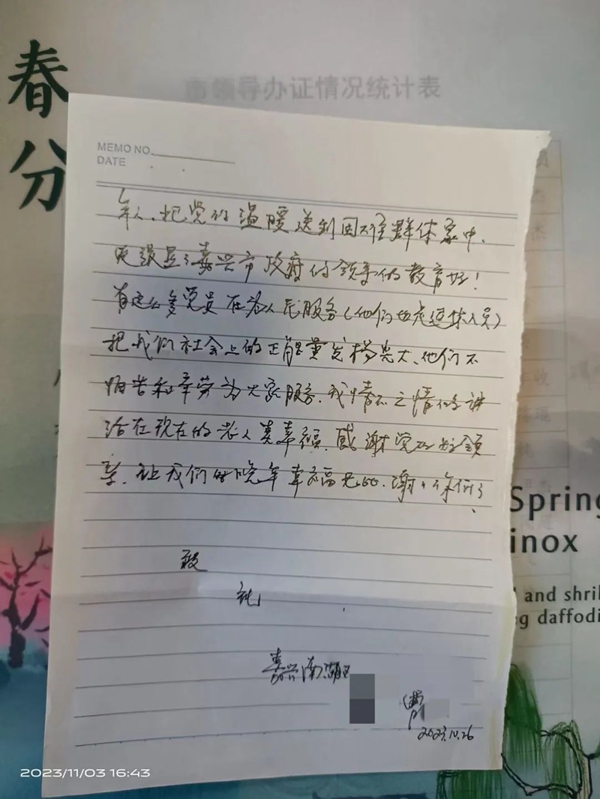 春分
市领导办证情况统计表
MEMO NO.
DATE
年人、把党的温暖送到困难群体家中、
更谢是嘉兴市政府的领导的教育好!
有这么多党员在为人民服务(他们也是退休人员)
把我们社会上的正能量发扬光大、他们不
怕苦和辛劳为大家服务、我情不之情的讲
活在现在的老人真幸福、感谢党的好领
导、让我们的晚年幸福无比、谢谢你们了
致
礼
嘉兴南湖区
2023.10.26
Spring
inox
and shri
g daffodi
2023/11/03 16:43